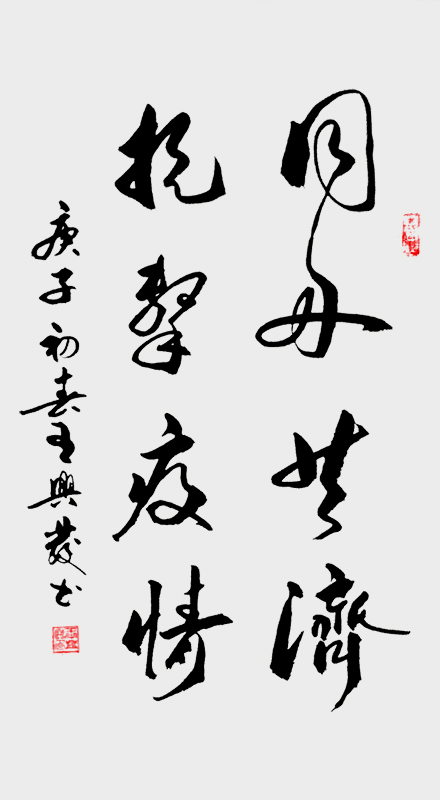 同舟共濟
抗擊疫情
庚子初春王興發书